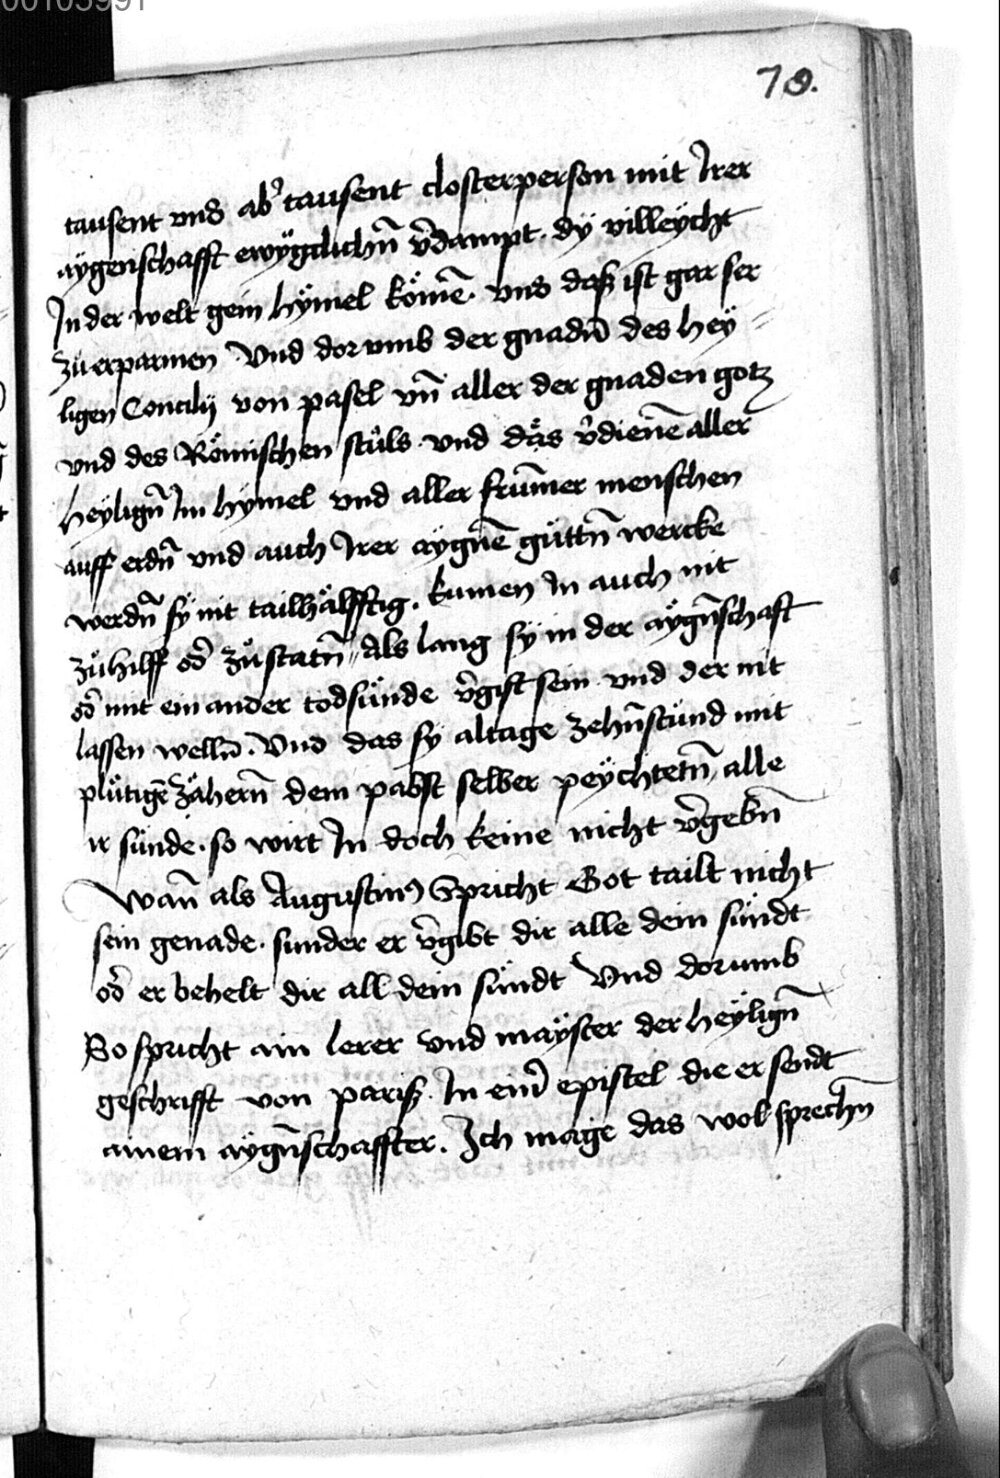 00103991
78.
tausent vnd abʾ tausent closterperson mit Irer
aygenschafft ewÿgclichn̄ v̄dampt. dÿ villeÿcht
In der welt gein hÿmel kömē. vnd daß ist gar ser
zů erparmen Vnd dorvmb der gnadn̄ des heÿ=
ligen Concilij von pasel vn̄ aller der gnaden gotz
vnd des Römischen stůls. vnd däs v̄dienē aller
heÿlign̄ Im hÿmel vnd aller frūmer menschen
auff erdn̄ vnd auch Irer aÿgnē gůttn̄ wercke
werdn̄ sÿ nit tailhälfftig. kumen In auch nit
zů hilff od̄ zů statn̄ Als lang sÿ in der aÿgn̄schaft
od̄ mit ein ander todsünde v̄gift sein. vnd der nit
lassen welln̄. Vnd das sÿ altage zehn̄stund mit
plůtigē zähern̄ dem pabst selber peÿchtetn̄ alle
ir sünde. so wirt In doch keine nicht v̄gebn̄
Wan̄ als Augustinꝰ Spricht Got tailt nicht
sein genade. sunder er v̄gibt dir alle dein sündt
od̄ er behelt dir all dein sündt Vnd dorumb
So spricht ain lerer vnd maÿster der heÿlign̄
geschrifft von pariß. In eim̄ epistel die er sendt
ainem aÿgn̄schaffter. Ich mage das wol sprechn̄